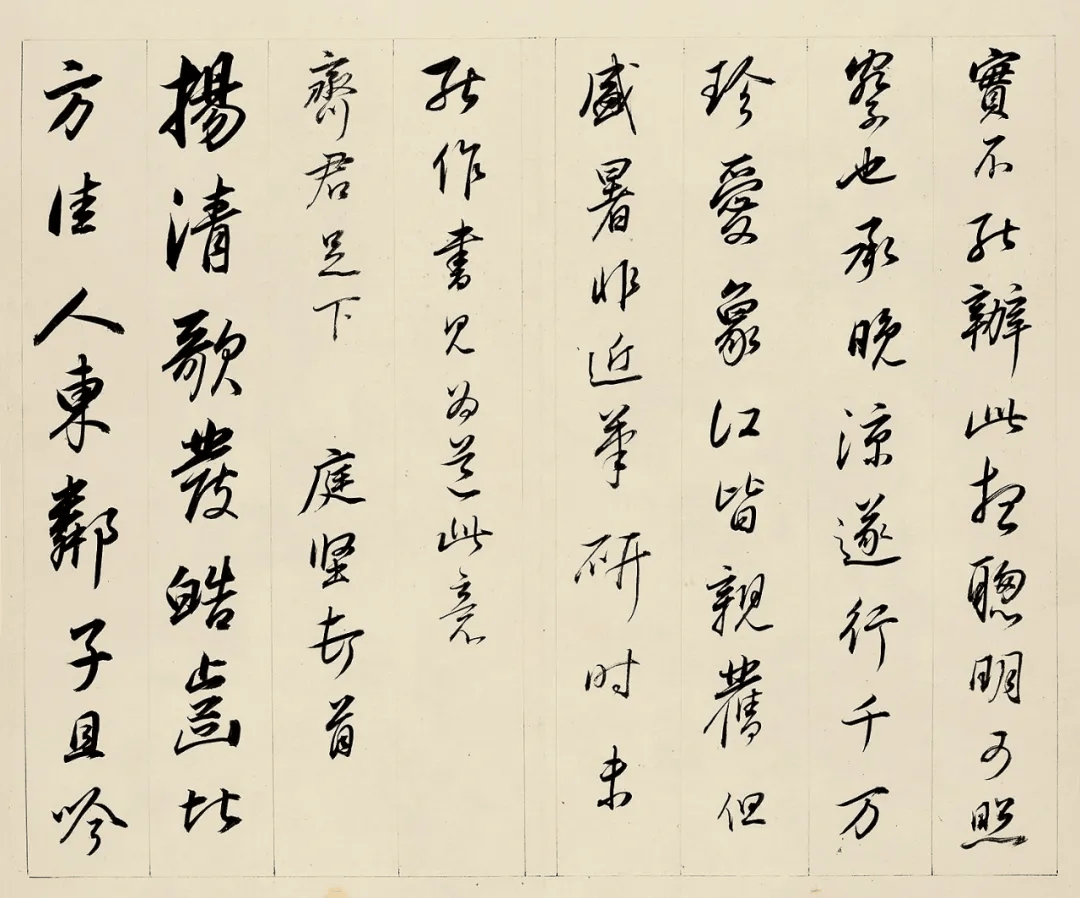 實不能辦此想聰明可照
察也承晚涼遂行千万
珍愛象江皆親舊但
盛暑非近筆研时未
能作書見為道此意
齋君足下 庭堅頓首
揚清歌發皓齒北
方佳人東鄰子且吟